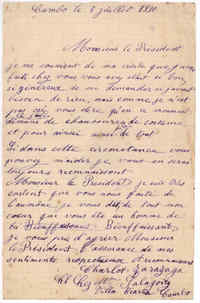 Cambo le 5 juillet 1890
Monsieur le Président
je me souvient de ma visite que j'avais
faite chez vous vous avez était si bon,
si généreux de ne demander n'avait
besoin de rien, mais comme je n'est
pas osé vous dire qu'on se trouvait
de chaussures de costume
et pour ainsi de tout
Si dans cette circonstance vous
pouvez m'aider je vous en serai
toujours reconnaissant
Monsieur le Président je suis très
content que vous faite de
l'aumône je vous dit de tout mon
coeur que vous été un homme de
la Bienfaisance.
je vous prie d'agréer Monsieur
le Président l'assurance de mes
sentiments respectueux et reconnaissants
Charlot Zaragoza
Chez Mr
Villa Cambo